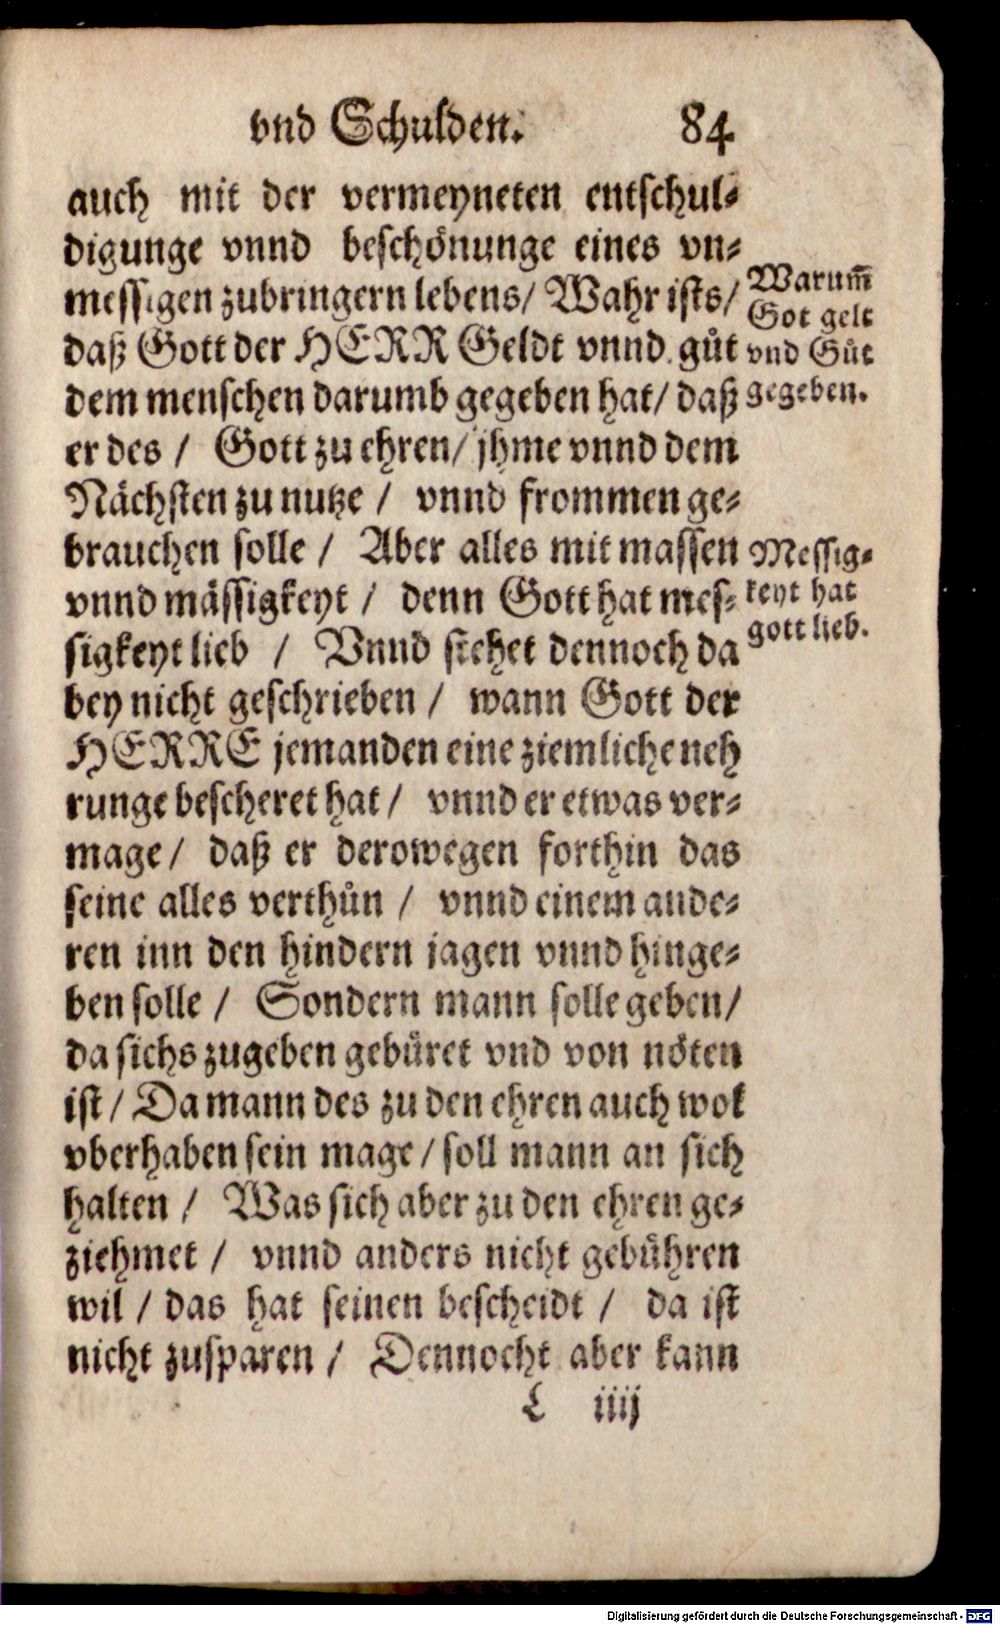 vnd Schulden. 84
auch mit der vermeyneten entschul⸗
digunge vnnd beschönunge eines vn⸗
messigen zubringern lebens/ Wahr ists/
daß Gott der HERR Geldt vnnd gůt
dem menschen darumb gegeben hat/ daß
er des / Gott zu ehren/ jhme vnnd dem
Nächsten zu nutze / vnnd frommen ge⸗
brauchen solle / Aber alles mit massen
vnnd mässigkeyt / denn Gott hat mes⸗
sigkeyt lieb / Vnnd stehet dennoch da
bey nicht geschrieben / wann Gott der
HERRE jemanden eine ziemliche neh
runge bescheret hat / vnnd er etwas ver⸗
mage / daß er derowegen forthin das
seine alles verthůn / vnnd einem ande⸗
ren inn den hindern jagen vnnd hinge⸗
ben solle / Sondern mann solle geben/
da sichs zugeben gebüret vnd von nöten
ist / Da mann des zu den ehren auch wol
vberhaben sein mage / soll mann an sich
halten / Was sich aber zu den ehren ge⸗
ziehmet / vnnd anders nicht gebühren
wil / das hat seinen bescheidt / da ist
nicht zusparen / Dennocht aber kann
L iiij
Warum̃
Got gelt
vnd Gůt
gegeben.
Messig⸗
keyt hat
gott lieb.
Digitalisierung gefördert durch die Deutsche Forschungsgemeinschaft - DFG